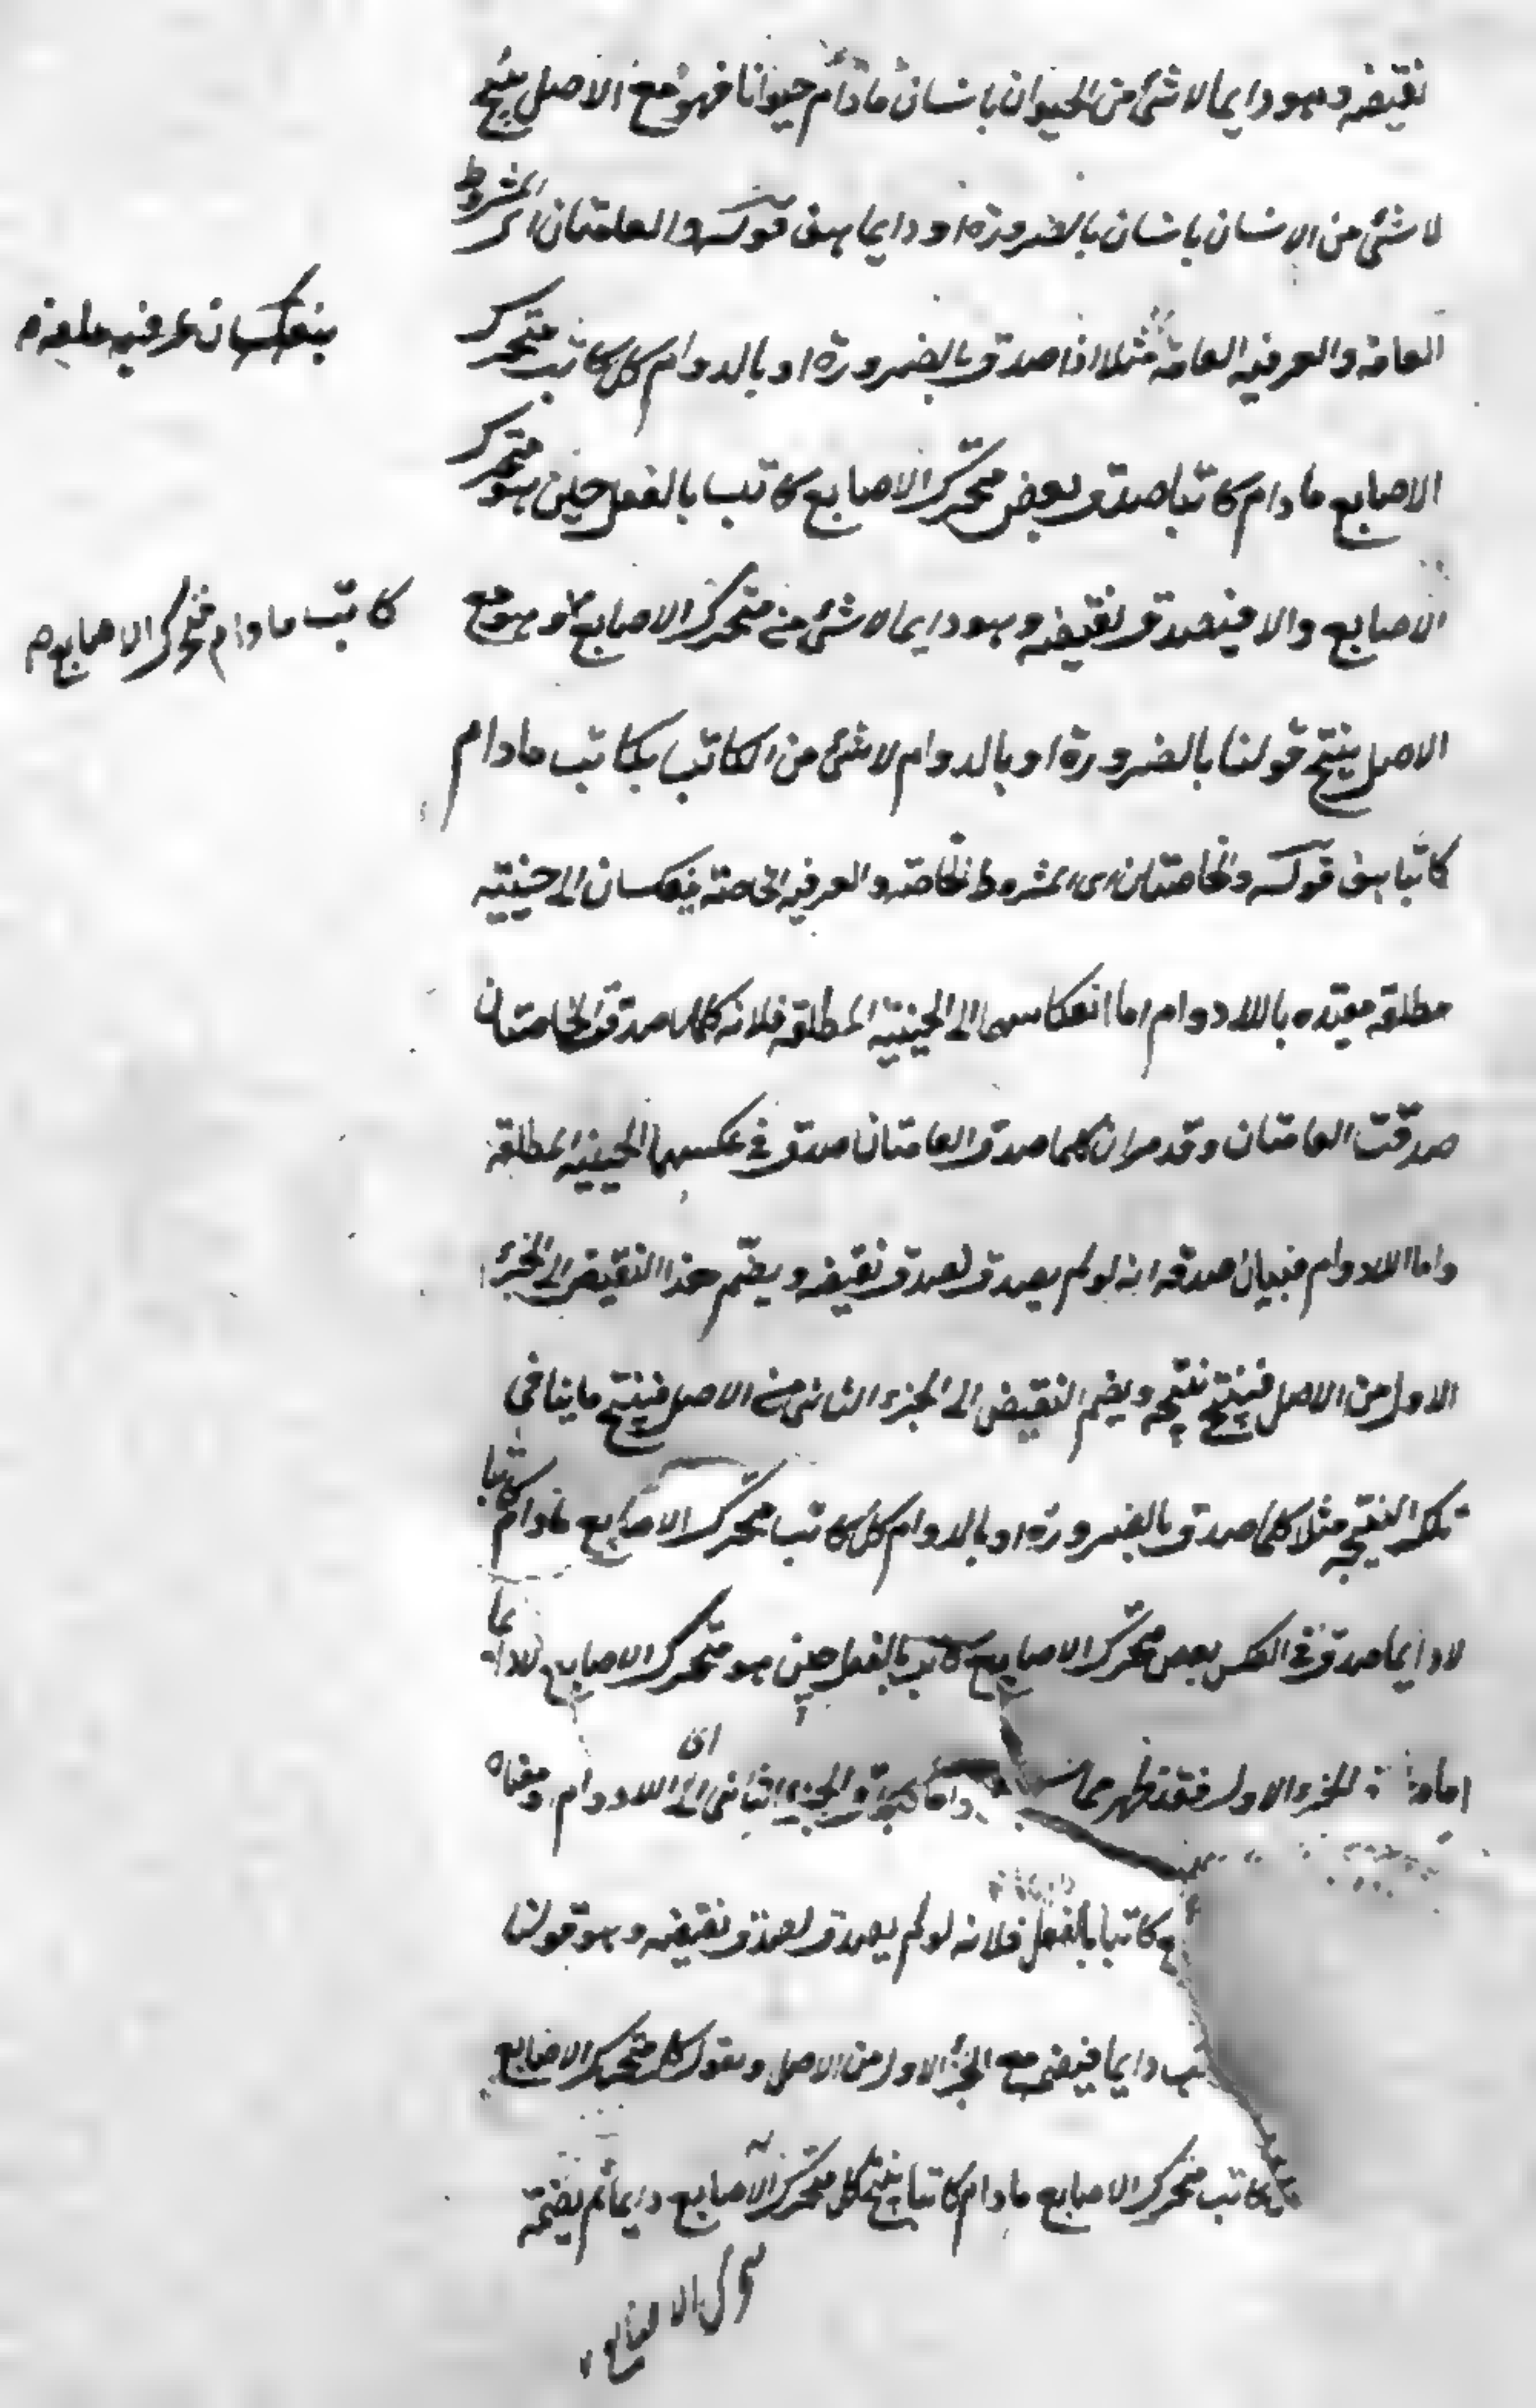 نقيضه وهو دايما لا شئ من الحيوان بانسان ما دام حيوانا فهو مع الاصل ينتج
لا شئ من الانسان بانسان بالضرورة او دايما هف قوله والعامتان اى المشروط
العامه والعرفيه العامة مثلا اذا صدق بالضرورة او بالدوام كل كاتب متحرك
ينعكسان عرفيه
الاصابع ما دام كاتبا صدق بعض متحرك الاصابع كاتب بالفعل حين هو متحرك
الاصابع والا فيصدق نقيضه وهو دايما لا شئ من متحرك الاصابع وهو مع
كاتب ما دام متحرك الاصابع
الاصل ينتج قولنا بالضرورة او بالدوام لا شئ من الكاتب بكاتب ما دام
كاتبا هف قوله والخاصتان اى المشروط الخاصه والعرفيه الخاصة ينعكسان الى حينيه
مطلقه مقيده باللادوام اما انعكاسهما الى الحينية المطلقه فلانه كلما صدقت الخاصتان
صدقت العامتان وقد مر ان كلما صدق العامتان صدق فى عكسهما الحينيه المطلقة
واما اللادوام فبيان صدقه انه لو لم يصدق لصدق نقيضه ويضم هذا النقيض الى الجزء
الاول من الاصل فينتج نتيجه ويضم النقيض الى الجزء الثانى من الاصل فينتج ما ينافى
تلك النتيجه مثلا كلما صدق بالضرورة او بالدوام كل كاتب متحرك الاصابع ما دام كاتبا
لا دايما صدق فى العكس بعض متحرك الاصابع كاتب بالفعل حين هو متحرك الاصابع لا دايما
اما الجزء الاول فقد ظهر مما واما صدق الجزء الثانى اى اللادوام ومعناه
ع كاتبا بالفعل فلانه لو لم يصدق لصدق نقيضه وهو قولنا
تب دايما فيضم مع الجزء الاول من الاصل ونقول كل متحرك الاصابع
كاتب متحرك الاصابع ما دام كاتبا ينتج كل متحرك الاصابع دايما ثم يضمه